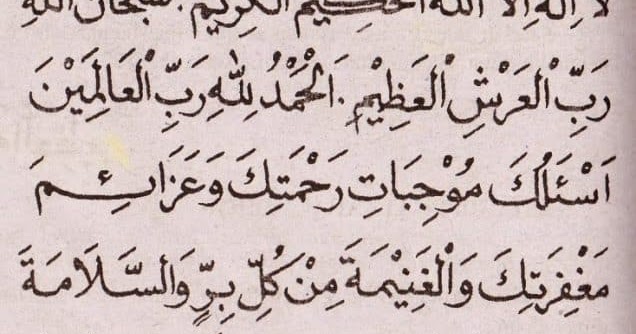 لا اله الا الله الحكيم الكريم . سبحان الله
رَبِّ الْعَرْشِ الْعَظِيْمِ . اَلْحَمْدُ لِلّٰهِ رَبِّ الْعَالَمِيْنَ
اَسْئَلُكَ مُوْجِبَاتِ رَحْمَتِكَ وَعَزَائِمَ
مَغْفِرَتِكَ وَالْغَنِيْمَةَ مِنْ كُلِّ بِرٍّ وَالسَّلَامَةَ